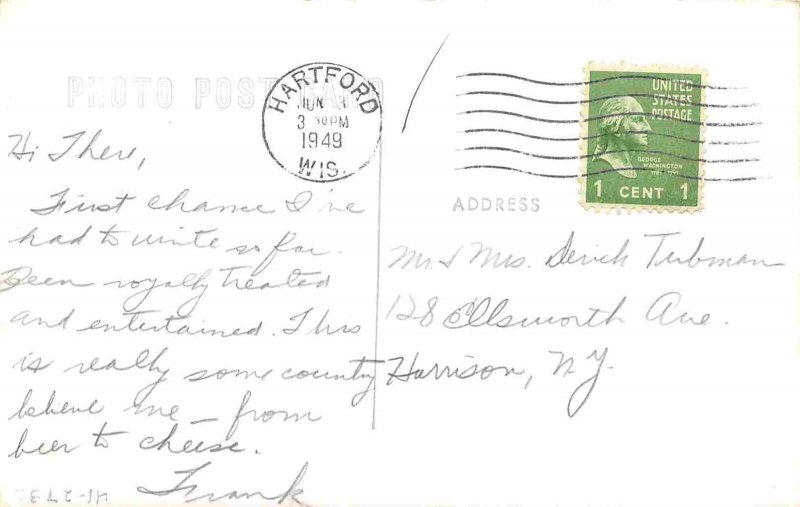 PHOTO POST CARD
HARTFORD
JUN
3 30 PM
1949
WIS.
UNITED
STATES
POSTAGE
GEORGE
WASHINGTON
1 CENT 1
ADDRESS
Hi There,
First chance I've
had to write so far.
Been royally treated
and entertained. This
is really some country
believe me – from
beer to cheese.
Frank
Mr. & Mrs. Derick Tubman
128 Ellsworth Ave.
Harrison, N.Y.